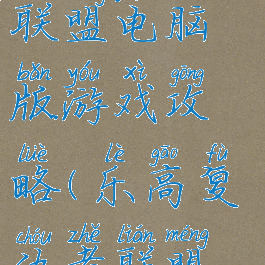 联盟电脑
bǎn yóu xì gōng
版游戏攻
lüè lè gāo fù
略(乐高复
chóu zhě lián méng
仇者联盟